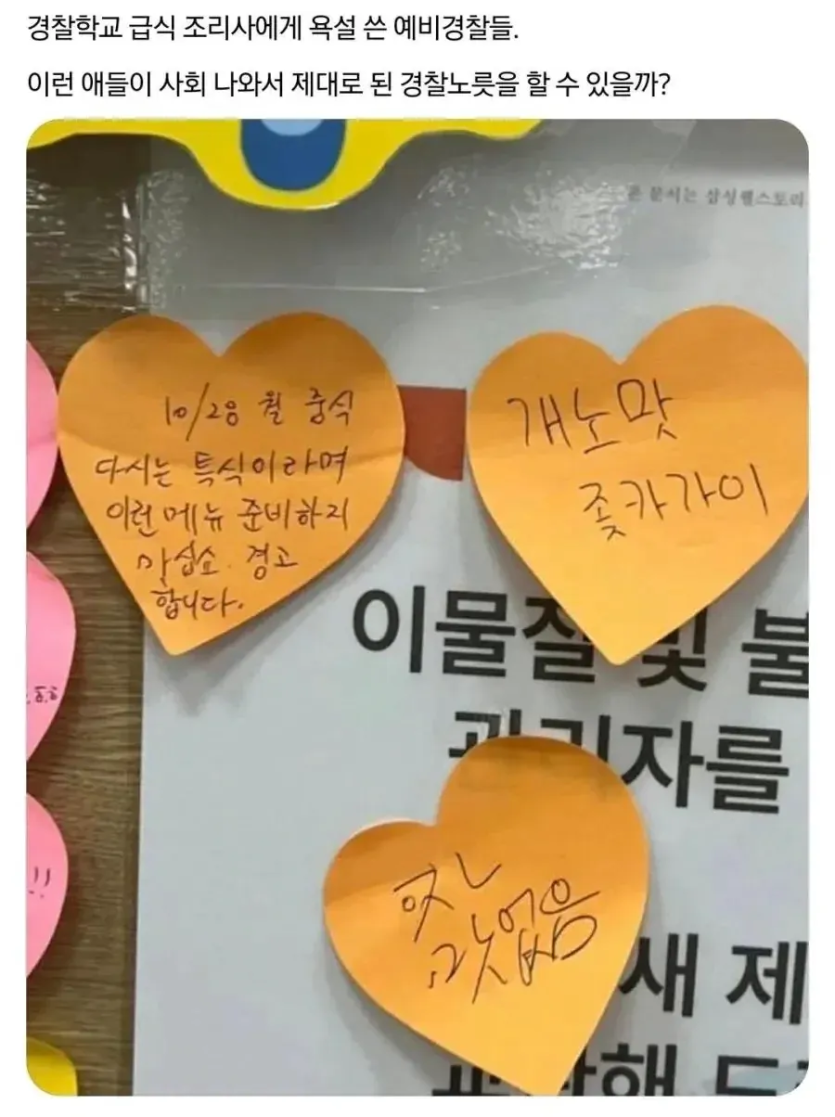 경찰학교 급식 조리사에게 욕설 쓴 예비경찰들.
이런 애들이 사회 나와서 제대로 된 경찰노릇을 할 수 있을까?
문서는 삼성웰스토리
10/28 월 중식
다시는 특식이라며
이런 메뉴 준비하지
마십쇼. 경고
합니다.
개노맛
좆카가이
이물질 및 불
관리자를
맛없음
새 제
!!